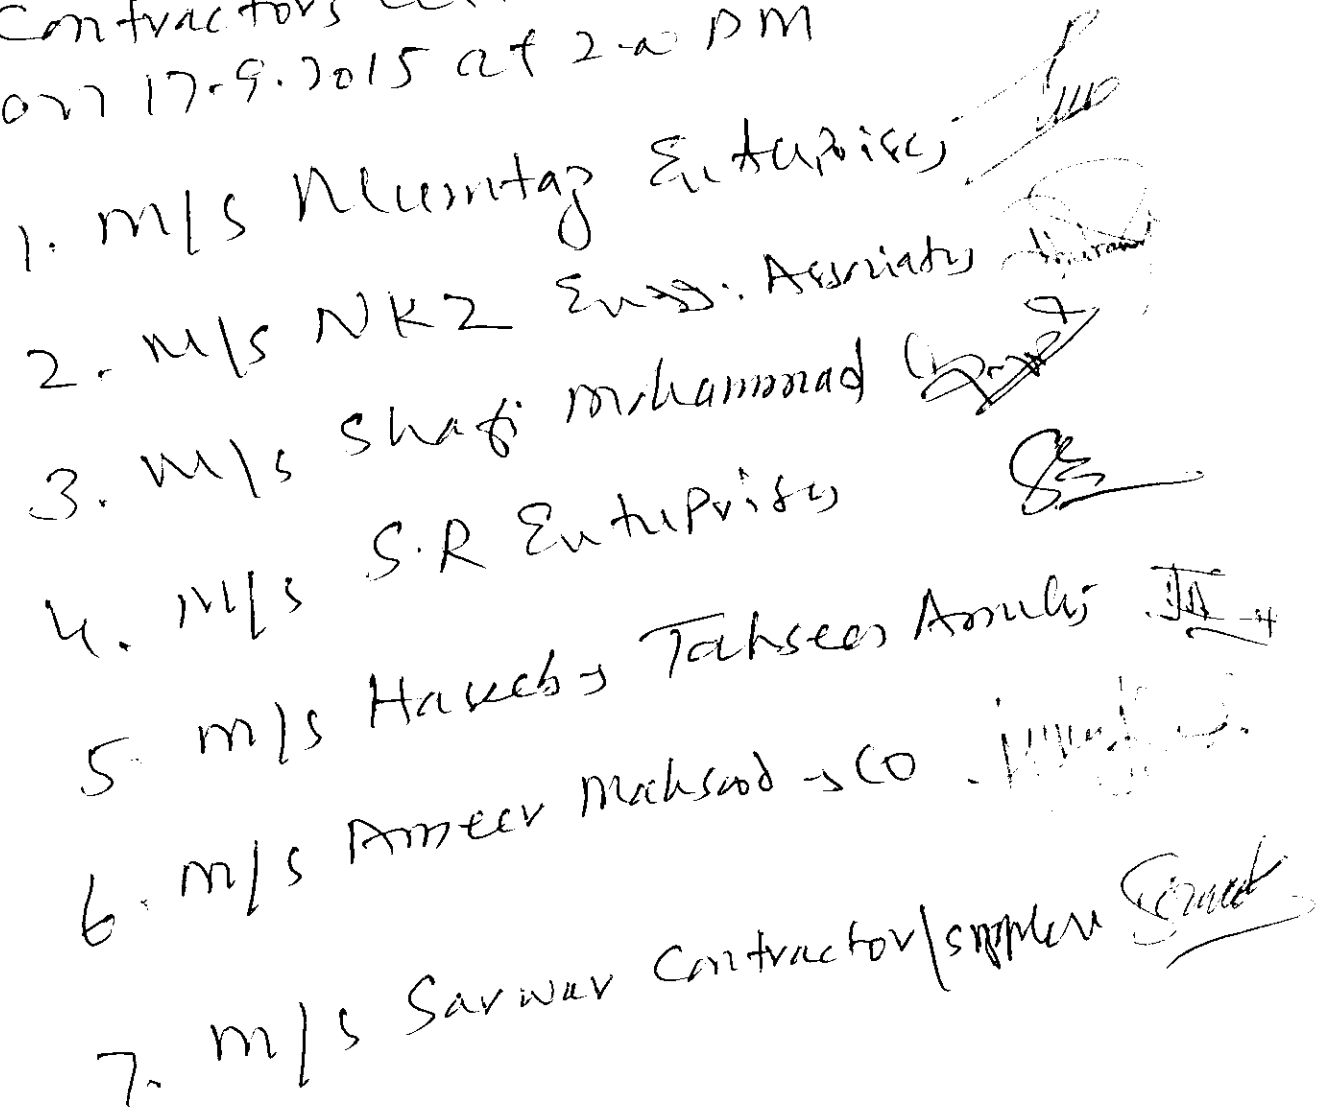 Contractors
on 17.9.2015 at 2-00 PM
1. M/S Mumtaz Enterprises
2. M/S NKZ Engg: Associates
3. M/S Shafi Mohammad
4. M/S S.R Enterprises
5. M/S Haseeb Tahseen
6. M/S Ameer Mahsood CO
7. M/S Sarwar Contractor/Supplier